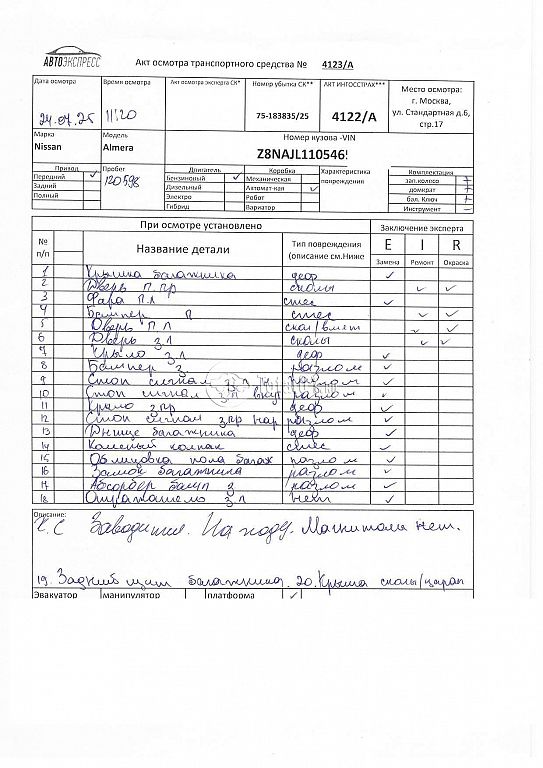 АВТОЭКСПРЕСС
Акт осмотра транспортного средства № 4123/А
Дата осмотра Время осмотра Акт осмотра эксперта СК* Номер убытка СК** АКТ ИНГОССТРАХ*** Место осмотра:
24.07.25 11:20 75-183835/25 4122/А г. Москва, ул. Стандартная д.6, стр.17
Марка Модель Номер кузова -VIN
Nissan Almera Z8NAJL110546
Привод Пробег Двигатель Коробка Характеристика повреждения Комплектация
Передний ✓ 120598 Бензиновый ✓ Механическая зап.колесо +
Задний Дизельный Автомат-кая ✓ домкрат +
Полный Электро Робот бал. Ключ +
Гибрид Вариатор Инструмент –
При осмотре установлено Заключение эксперта
№ п/п Название детали Тип повреждения (описание см.Ниже E I R
Замена Ремонт Окраска
1 Крышка багажника деф ✓
2 Дверь п.пр сколы ✓ ✓
3 Фара п л стес ✓
4 Бампер п стес ✓ ✓
5 Дверь п л скол/вмят ✓ ✓
6 Дверь з л сколы ✓ ✓
7 Крыло з л деф ✓
8 Бампер з. разлом ✓
9 Стоп сигнал з л разлом ✓
10 Стоп сигнал з л внут разлом ✓
11 Крыло з пр деф ✓
12 Стоп сигнал з пр нар разлом ✓
13 Днище багажника деф ✓
14 Колёсный колпак стес ✓
15 Облицовка пола багаж разлом ✓
16 Замок багажника разлом ✓
17 Абсорбер бамп з разлом ✓
18 з л нет ✓
Описание:
Т.С Заводится. На ходу. Магнитола нет.
19. Задний щит багажника. 20. Крыша сколы/царап
Эвакуатор манипулятор платформа ✓